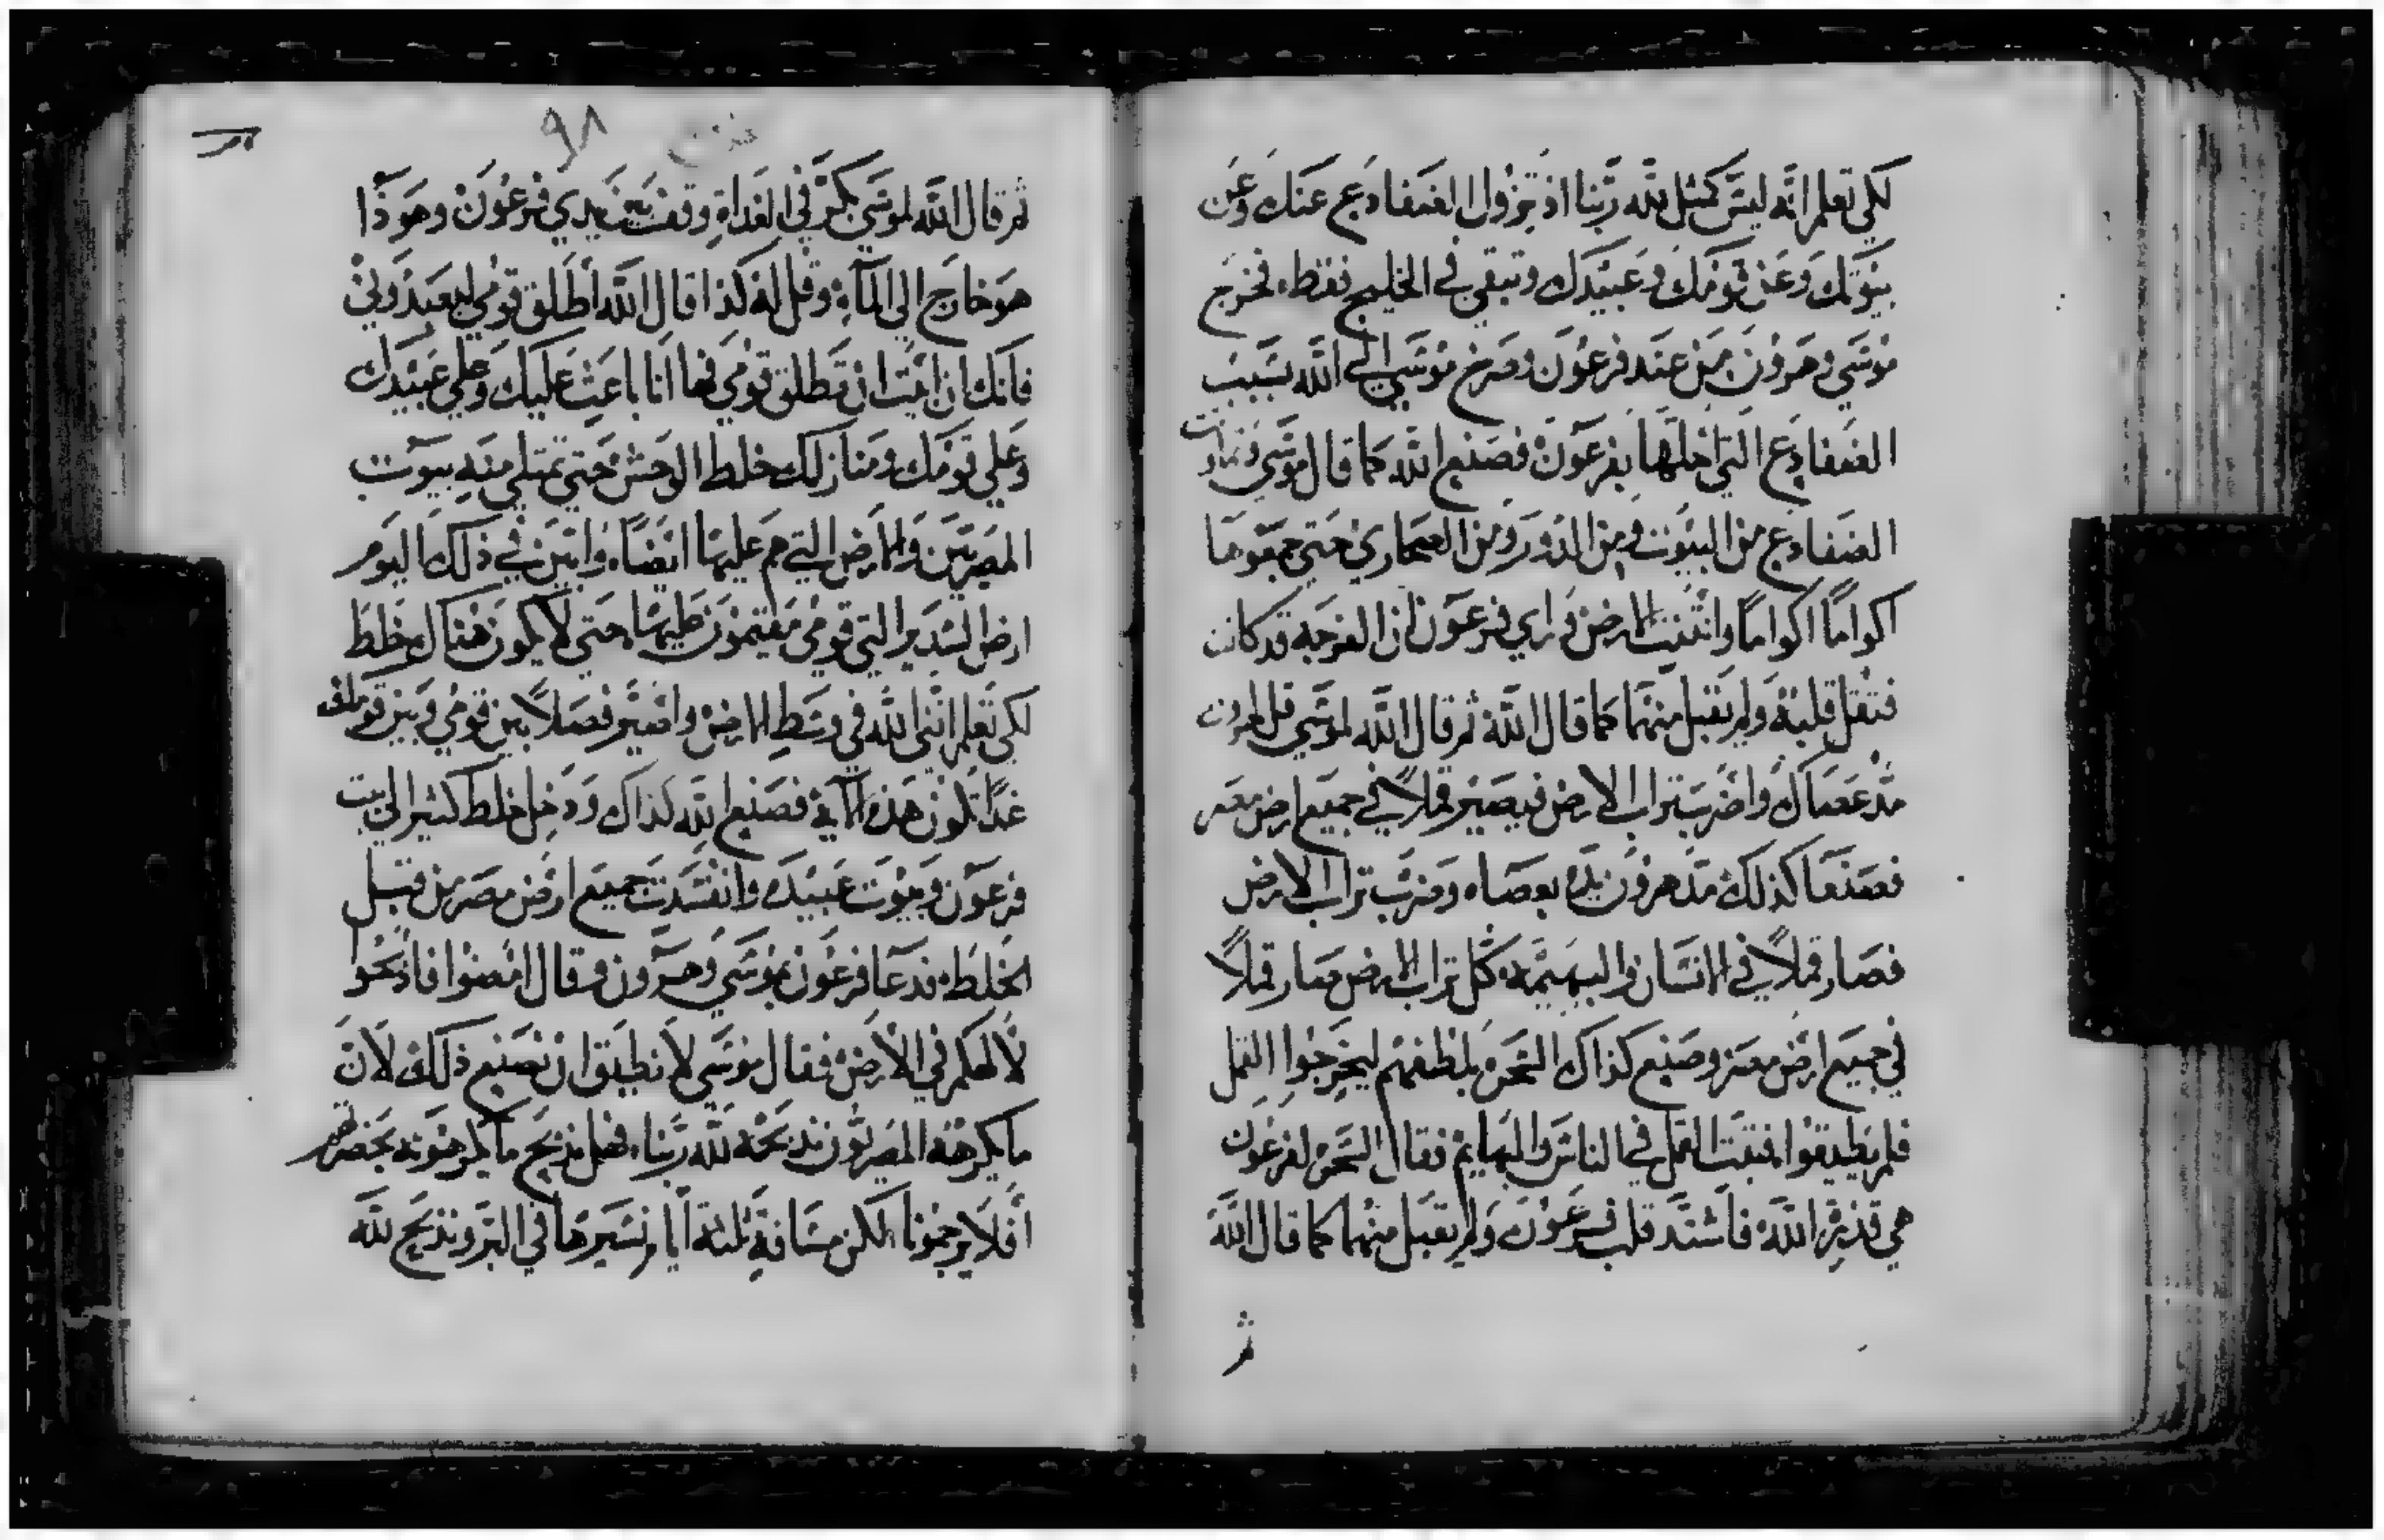 لكي تعلم انه ليس كمثل الله ربنا اذ تزول الضفادع عنك وعن
بيوتك وعن قومك وعبيدك وتبقى في الخليج فقط، فخرج
موسى وهرون من عند فرعون وصرخ موسى الى الله بسبب
الضفادع التي احلها بفرعون فصنع الله كما قال موسى وماتت
الضفادع من البيوت ومن الدور ومن الصحاري حتى جمعوها
اكواماً اكواماً وانتنت الارض وراي فرعون ان الفرجه قد كانت
فثقل قلبه ولم يقبل منهما كما قال الله ثم قال الله لموسى قل لهرون
مد عصاك واضرب تراب الارض فيصير قملاً في جميع ارض مصر
فصنعا كذلك مد هرون يده بعصاه وضرب تراب الارض
فصار قملاً في الانسان والبهيمه كل تراب الارض صار قملاً
في جميع ارض مصر وصنع كذاك السحره بلطفهم ليخرجوا القمل
فلم يطيقوا فبقت القمل في الناس والبهايم فقال السحره لفرعون
هي قدره الله فاشتد قلب فرعون ولم يقبل منهما كما قال الله
ثم
٩٨
ثم قال الله لموسى بكر في الغداة وقف بين يدي فرعون وهوذا
هو خارج الي المآء وقل له كذا قال الله اطلق قومي ليعبدوني
فانك ان ابيت ان تطلق قومي فها انا باعث عليك وعلي عبيدك
وعلي قومك ومنازلك خلط الوحش حتي تمتلي منه بيوت
المصريين والارض التي هم عليها ايضاً، وابين في ذلك اليوم
ارض السدير التي قومي مقيمون عليها حتي لا يكون هناك خلط
لكي تعلم انني الله في وسط الارض واصير فصلاً بين قومي وبين قومك
غداً تكون هذه الآية فصنع الله كذاك ودخل خلط كثير الي بيت
فرعون وبيوت عبيده وانفسدت جميع ارض مصر من قبل
الخلط، فدعا فرعون بموسى وهرون وقال امضوا فاذبحوا
لالهكم في الارض فقال موسى لا نطيق ان نصنع ذلك لان
ما يكرهه المصريون نذبحه لله ربنا، فهل نذبح ما يكرهونه بحضرتهم
أفلا يرجمونا لكن مسافة ثلثة أيام نسيرها في البر ونذبح لله